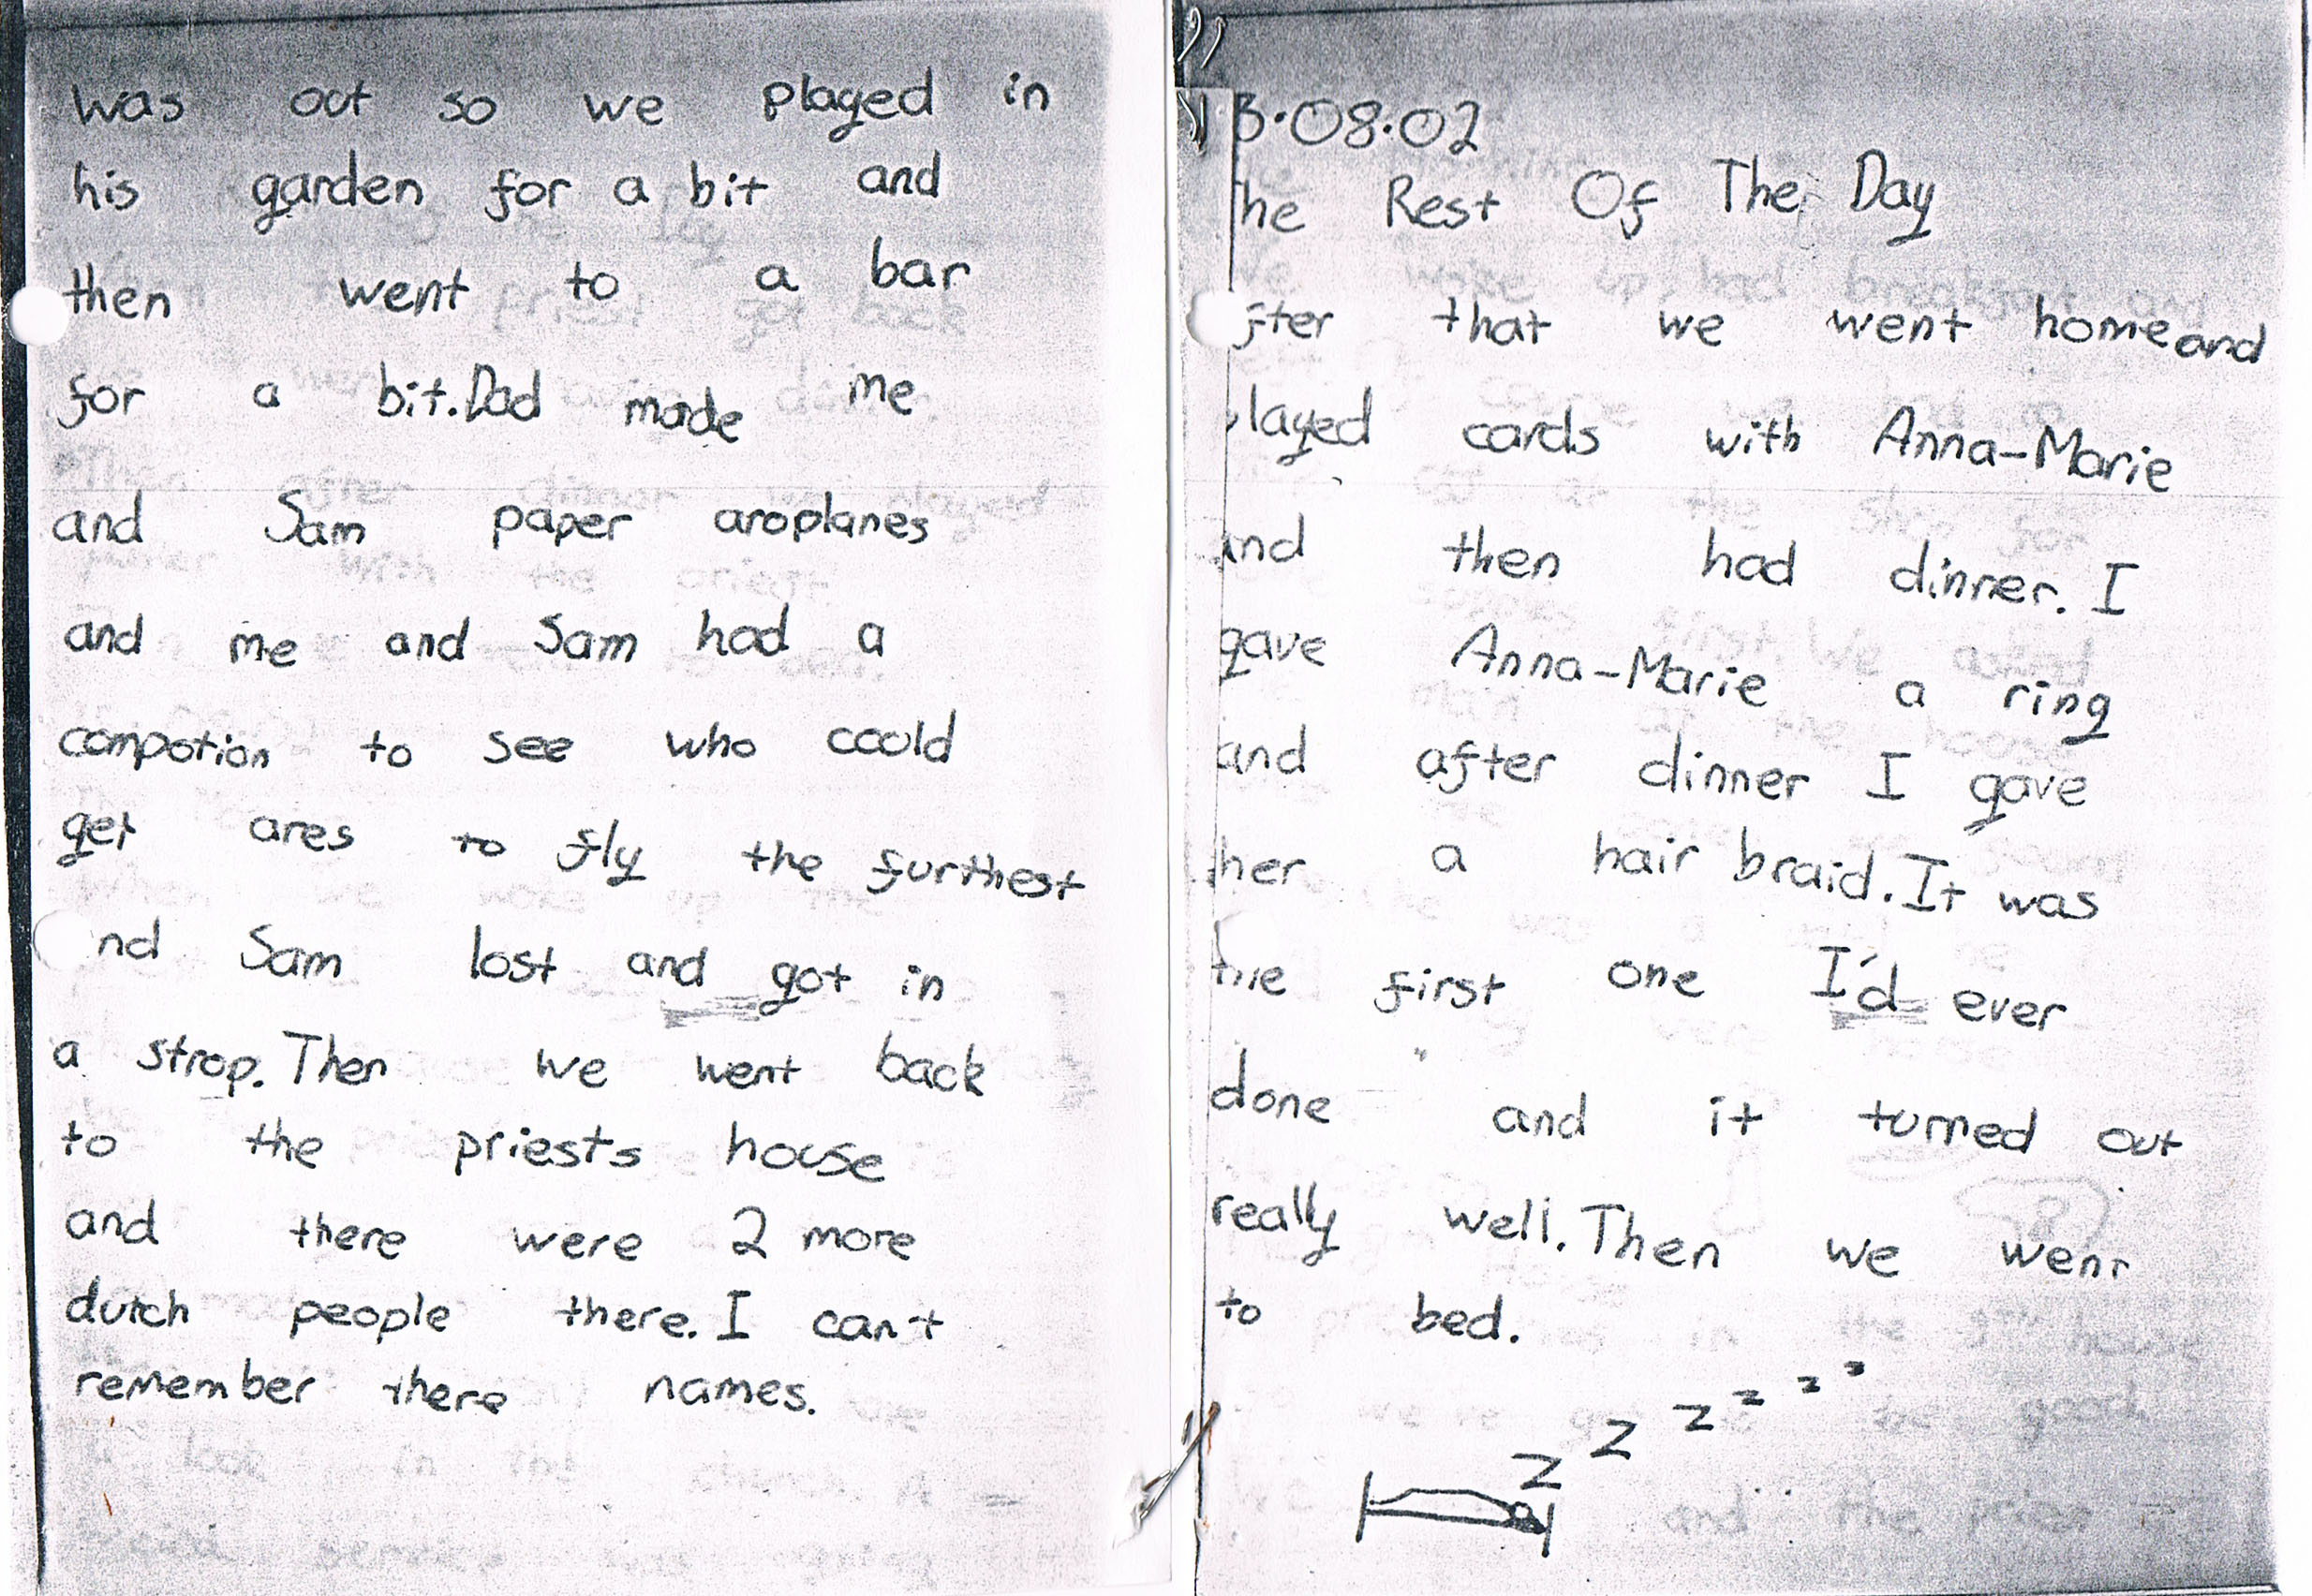 was out so we played in
his garden for a bit and
then went to a bar
for a bit. Dad made me
and Sam paper aroplanes
and me and Sam had a
compotion to see who could
get ares to fly the furthest
nd Sam lost and got in
a strop. Then we went back
to the priests house
and there were 2 more
dutch people there. I can't
remember there names.
3.08.02
he Rest Of The Day
fter that we went home and
layed cards with Anna-Marie
and then had dinner. I
gave Anna-Marie a ring
and after dinner I gave
her a hair braid. It was
the first one I'd ever
done and it turned out
really well. Then we went
to bed.
z z z z z z